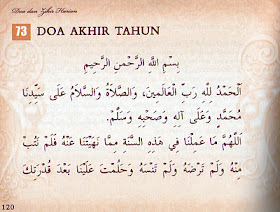 Doa dan Zikir Harian
73 DOA AKHIR TAHUN
بِسْمِ اللَّهِ الرَّحْمٰنِ الرَّحِيْمِ
اَلْحَمْدُ لِلّٰهِ رَبِّ الْعَالَمِيْنَ، وَالصَّلَاةُ وَالسَّلَامُ عَلَى سَيِّدِنَا
مُحَمَّدٍ وَعَلَى آلِهِ وَصَحْبِهِ وَسَلَّمَ.
اَللّٰهُمَّ مَا عَمِلْنَا فِي هَذِهِ السَّنَةِ مِمَّا نَهَيْتَنَا عَنْهُ فَلَمْ نَتُبْ
مِنْهُ وَلَمْ تَرْضَهُ وَلَمْ تَنْسَهُ وَحَلُمْتَ عَلَيْنَا بَعْدَ قُدْرَتِكَ
120